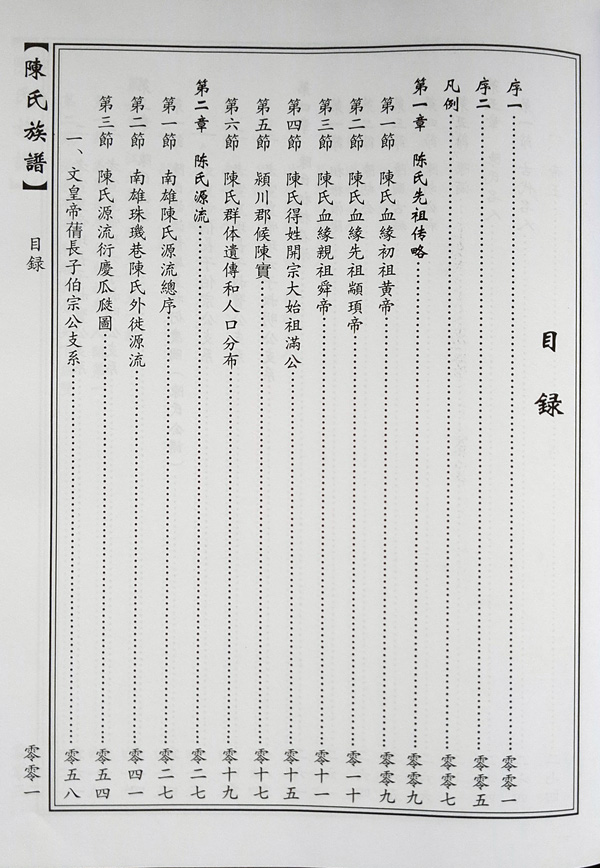 目録
序一 零零一
序二 零零五
凡例 零零七
第一章 陈氏先祖传略 零零九
第一節 陳氏血緣初祖黄帝 零零九
第二節 陳氏血緣先祖顓頊帝 零一十
第三節 陳氏血緣親祖舜帝 零十一
第四節 陳氏得姓開宗大始祖滿公 零十五
第五節 潁川郡候陳實 零十七
第六節 陳氏群体遺傳和人口分布 零十九
第二章 陈氏源流 零二七
第一節 南雄陳氏源流總序 零二七
第二節 南雄珠璣巷陳氏外徙源流 零四一
第三節 陳氏源流衍慶瓜瓞圖 零五四
一、文皇帝蒨長子伯宗公支系 零五八
【陳氏族譜】 目録 零零一